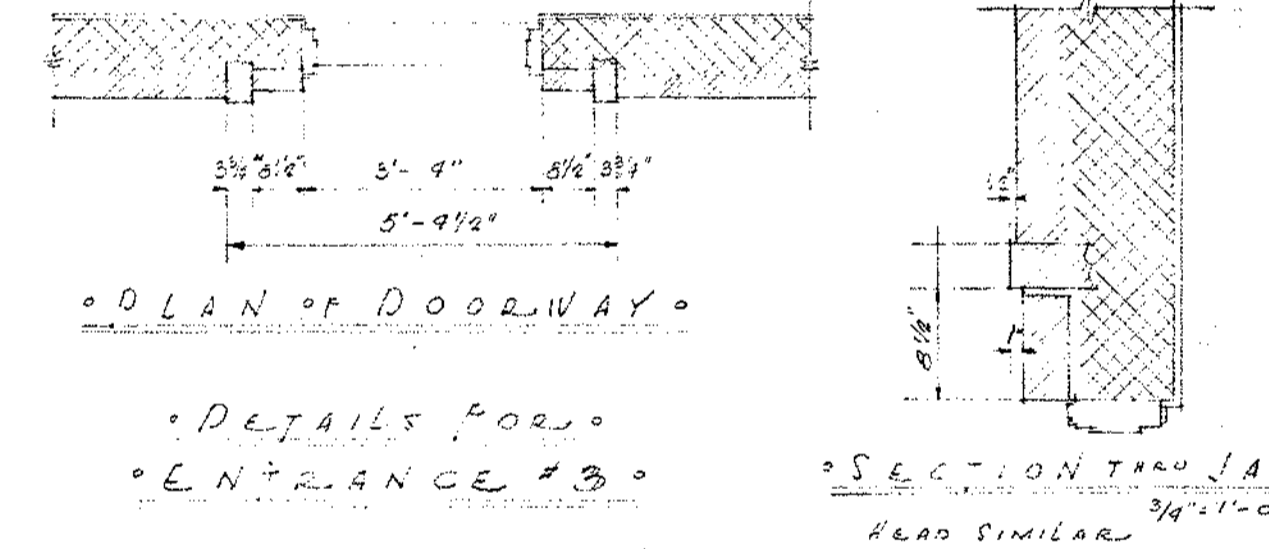 3¾" 8½" 3'-4" 8½" 3¾"
5'-4½"
• PLAN OF DOORWAY •
• DETAILS FOR •
• ENTRANCE #3 •
½"
8½"
1"
• SECTION THRU JA
¾"=1'-0
HEAD SIMILAR